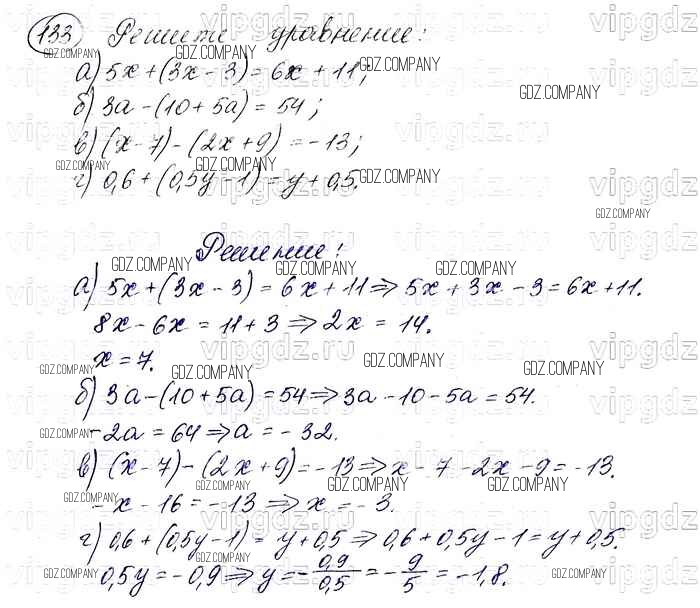 133 Решите уравнение:
а) 5x + (3x - 3) = 6x + 11;
б) 3a - (10 + 5a) = 54;
в) (x - 7) - (2x + 9) = -13;
г) 0,6 + (0,5y - 1) = y + 0,5.
Решение:
а) 5x + (3x - 3) = 6x + 11 ⇒ 5x + 3x - 3 = 6x + 11.
8x - 6x = 11 + 3 ⇒ 2x = 14.
x = 7.
б) 3a - (10 + 5a) = 54 ⇒ 3a - 10 - 5a = 54.
-2a = 64 ⇒ a = -32.
в) (x - 7) - (2x + 9) = -13 ⇒ x - 7 - 2x - 9 = -13.
-x - 16 = -13 ⇒ x = -3.
г) 0,6 + (0,5y - 1) = y + 0,5 ⇒ 0,6 + 0,5y - 1 = y + 0,5.
0,5y = -0,9 ⇒ y = -0,9/0,5 = -9/5 = -1,8.
GDZ.COMPANY
vipgdz.ru